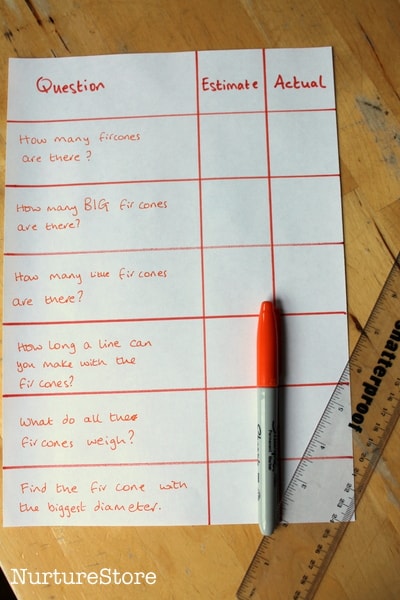 Question Estimate Actual
How many fircones
are there?
How many BIG fir cones
are there?
How many little fir cones
are there?
How long a line can
you make with the
fir cones?
What do all the
fir cones weigh?
Find the fir cone with
the biggest diameter.
Shatterproof
NurtureStore